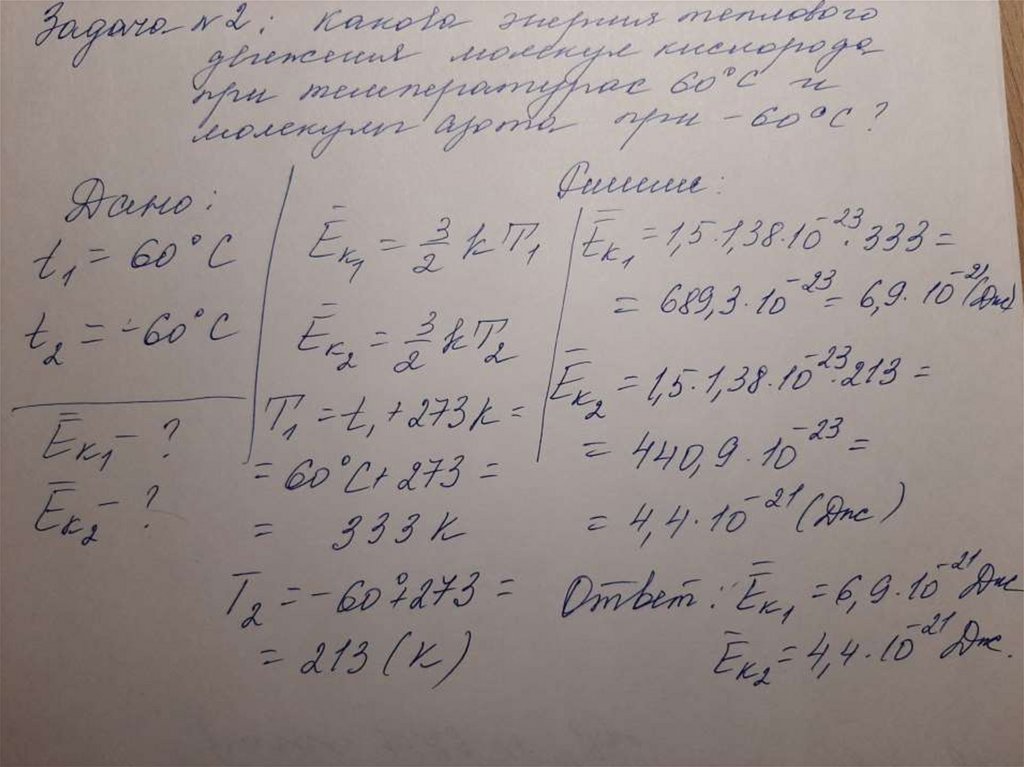 Задача №2: Какова энергия теплового
движения молекул кислорода
при температурас 60°C и
молекулы азота при -60°C?
Дано:
t₁ = 60°C
t₂ = -60°C
Ēк₁ - ?
Ēк₂ - ?
Ēк₁ = 3/2 kT₁
Ēк₂ = 3/2 kT₂
T₁ = t₁ + 273k =
= 60°C + 273 =
= 333k
T₂ = -60° + 273 =
= 213 (к)
Решение:
Ēк₁ = 1,5·1,38·10⁻²³·333 =
= 689,3·10⁻²³ = 6,9·10⁻²¹ (Дж)
Ēк₂ = 1,5·1,38·10⁻²³·213 =
= 440,9·10⁻²³ =
= 4,4·10⁻²¹ (Дж)
Ответ: Ēк₁ = 6,9·10⁻²¹ Дж
Ēк₂ = 4,4·10⁻²¹ Дж.